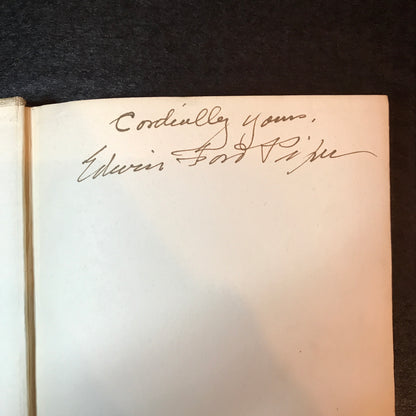 Cordially yours,
Edwin Ford Piper